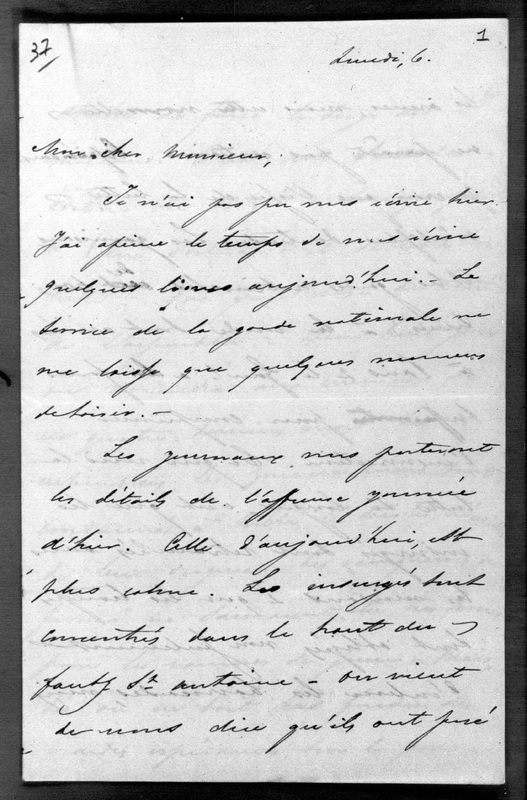 37
1
Lundi, 6.
Mon cher Monsieur,
Je n'ai pas pu vous écrire hier.
J'ai apeine le temps de vous écrire
quelques lignes aujourd'hui. - Le
service de la garde nationale ne
me laisse que quelques momens
de loisir. -
Les journaux vous porteront
les détails de l'affreuse journée
d'hier. Celle d'aujourd'hui, est
plus calme. Les insurgés sont
concentrés dans le haut du
faubg St. antoine - on vient
de nous dire qu'ils ont